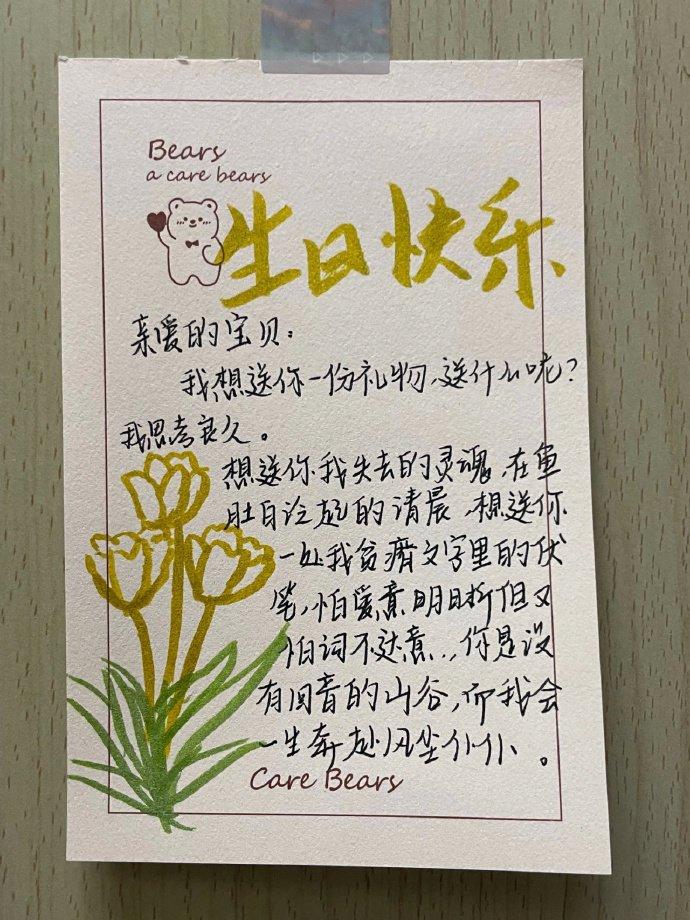 Bears
a care bears
生日快乐
亲爱的宝贝：
我想送你一份礼物，送什么呢？
我思考良久。
想送你我失去的灵魂，在鱼
肚白泛起的清晨，想送你
一处我贫瘠文字里的伏
笔，怕爱意明目昕但又
怕词不达意..，你是没
有回音的山谷，而我会
一生奔赴风尘仆仆。
Care Bears